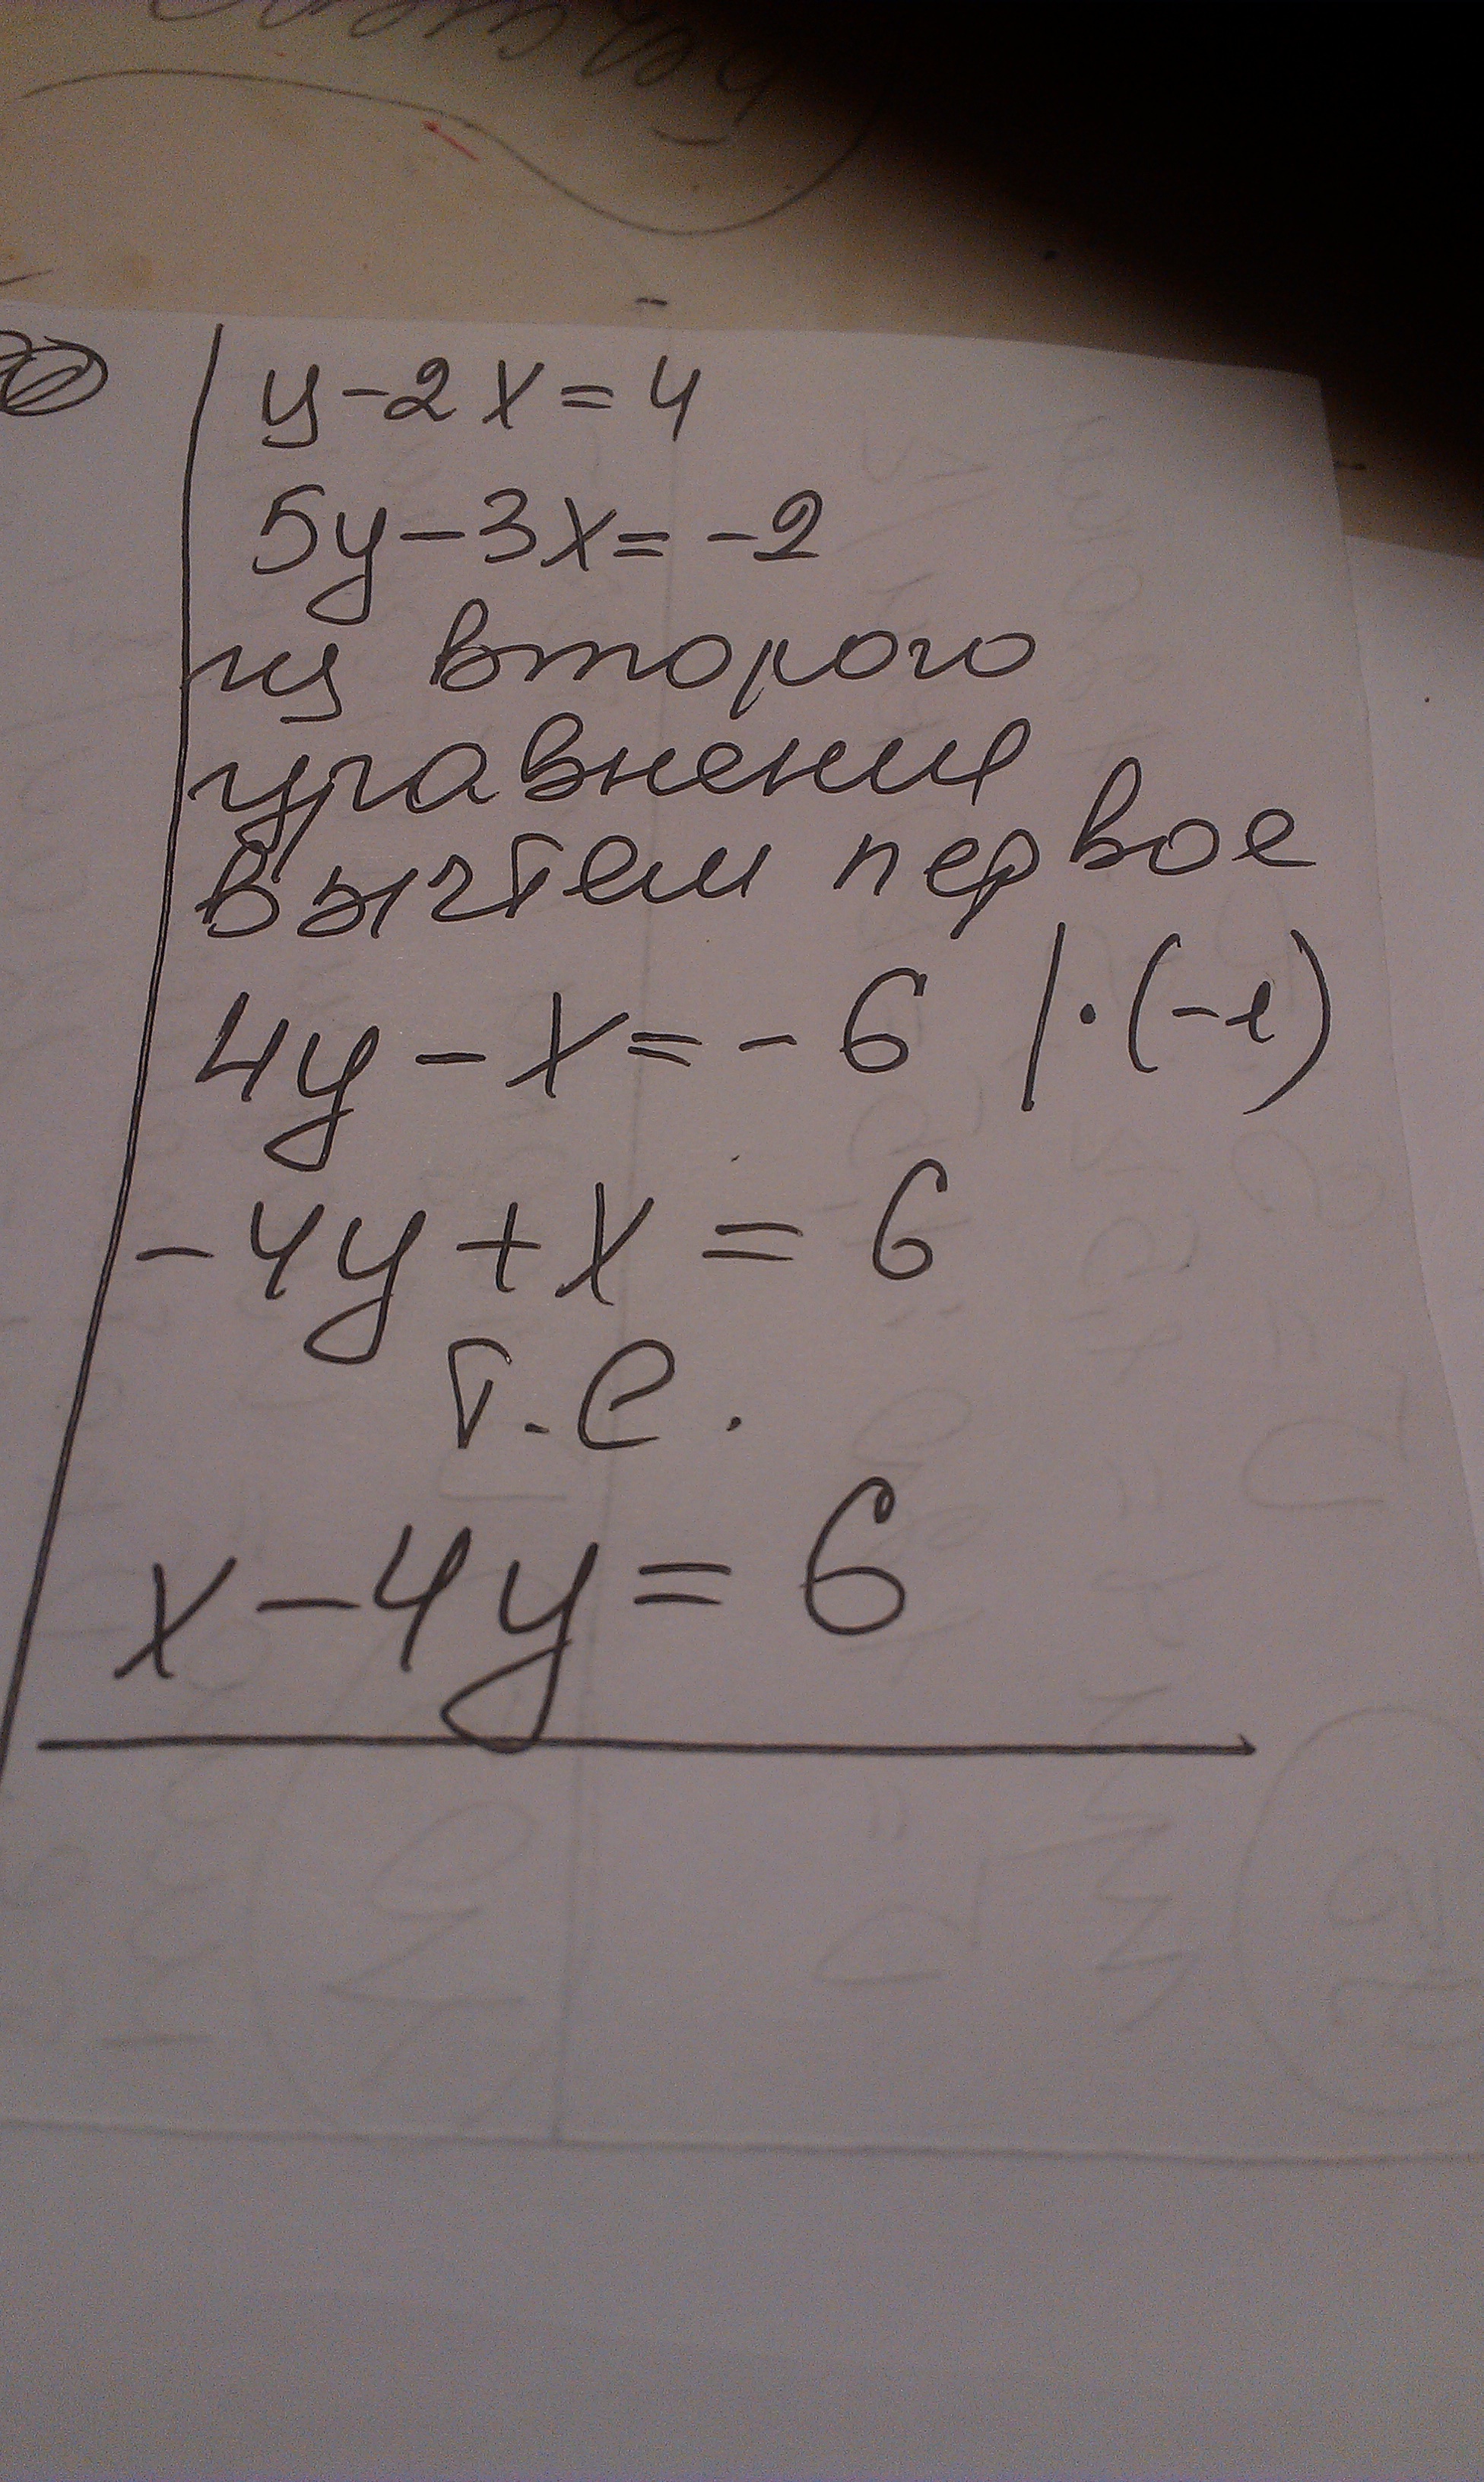 y-2x=4
5y-3x=-2
из второго
уравнения
вычтем первое
4y-x=-6 |·(-1)
-4y+x=6
т.е.
x-4y=6